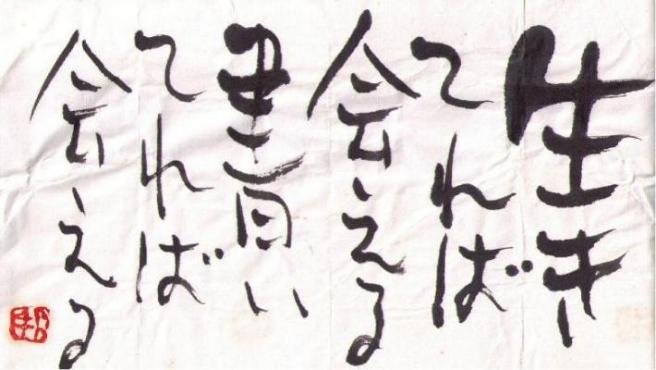 生き
てれば
会える
書い
てれば
会える